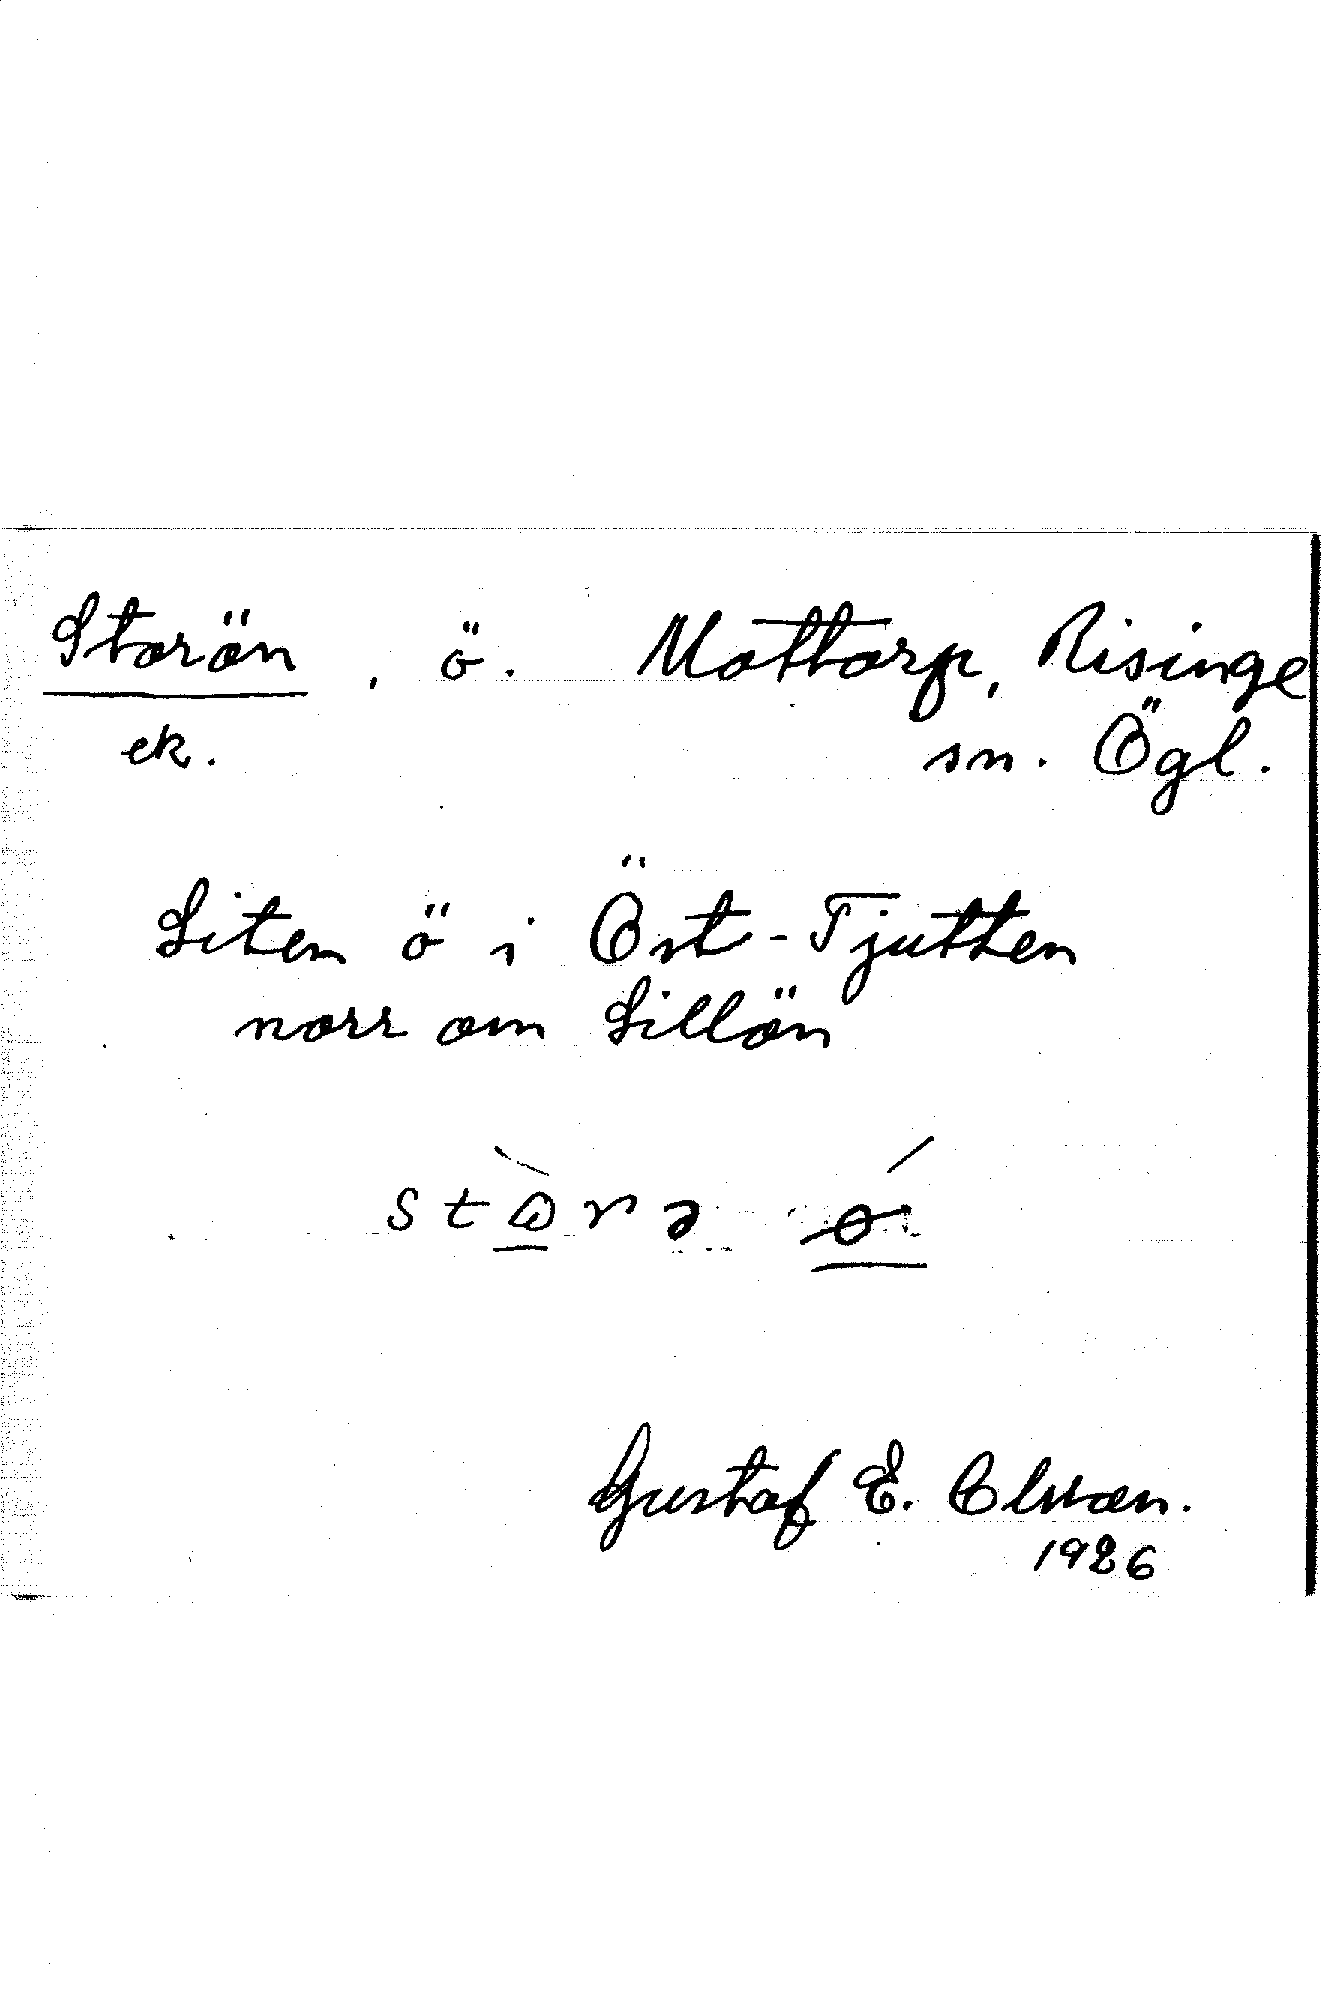 Storön, ö. Mottorp, Risinge
ek. sn. Ögl.
Liten ö i Öst-Tjutten
norr om Lillön
stòrə ǿ
Gustaf E. Olsson.
1926